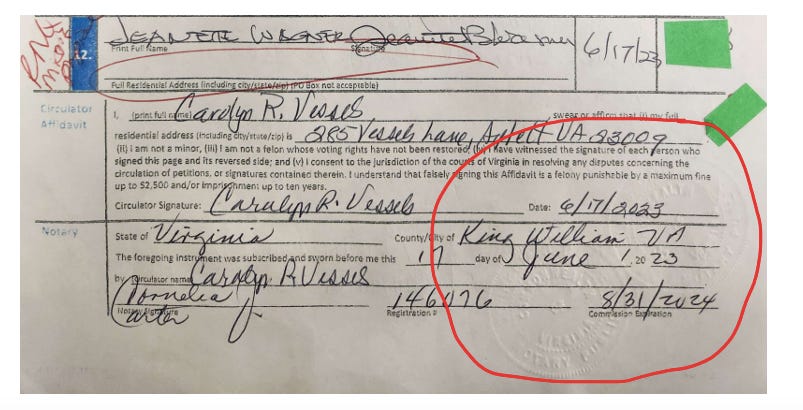 JEANETTE WAGNER
6/17/23
12.
Print Full Name Signature
Full Residential Address (including city/state/zip) (PO Box not acceptable)
Circulator
Affidavit
I, (print full name) Carolyn R. Vessels, swear or affirm that (i) my full
residential address (including city/state/zip) is 285 Vessels Lane, Aylett VA 23009
(ii) I am not a minor, (iii) I am not a felon whose voting rights have not been restored, (iv) I have witnessed the signature of each person who
signed this page and its reversed side; and (v) I consent to the jurisdiction of the courts of Virginia in resolving any disputes concerning the
circulation of petitions, or signatures contained therein. I understand that falsely signing this Affidavit is a felony punishable by a maximum fine
up to $2,500 and/or imprisonment up to ten years.
Circulator Signature: Carolyn R. Vessels Date: 6/17/2023
Notary
State of Virginia County/City of King William VA
The foregoing instrument was subscribed and sworn before me this 17 day of June, 2023
by (circulator name) Carolyn R. Vessels
Cornelia Carter 146076 8/31/2024
Notary Signature Registration # Commission Expiration